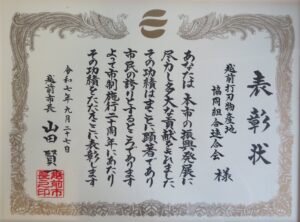 表彰状
越前打刃物産地
協同組合連合会 様
あなたは本市の振興発展に
尽力し多大な貢献をされました
その功績はまことに顕著であり
市民の誇りとするところであります
よって市制施行二十周年にあたり
その功績をたたえここに表彰します
令和七年九月二十七日
越前市長 山田賢一
越前市
長之印